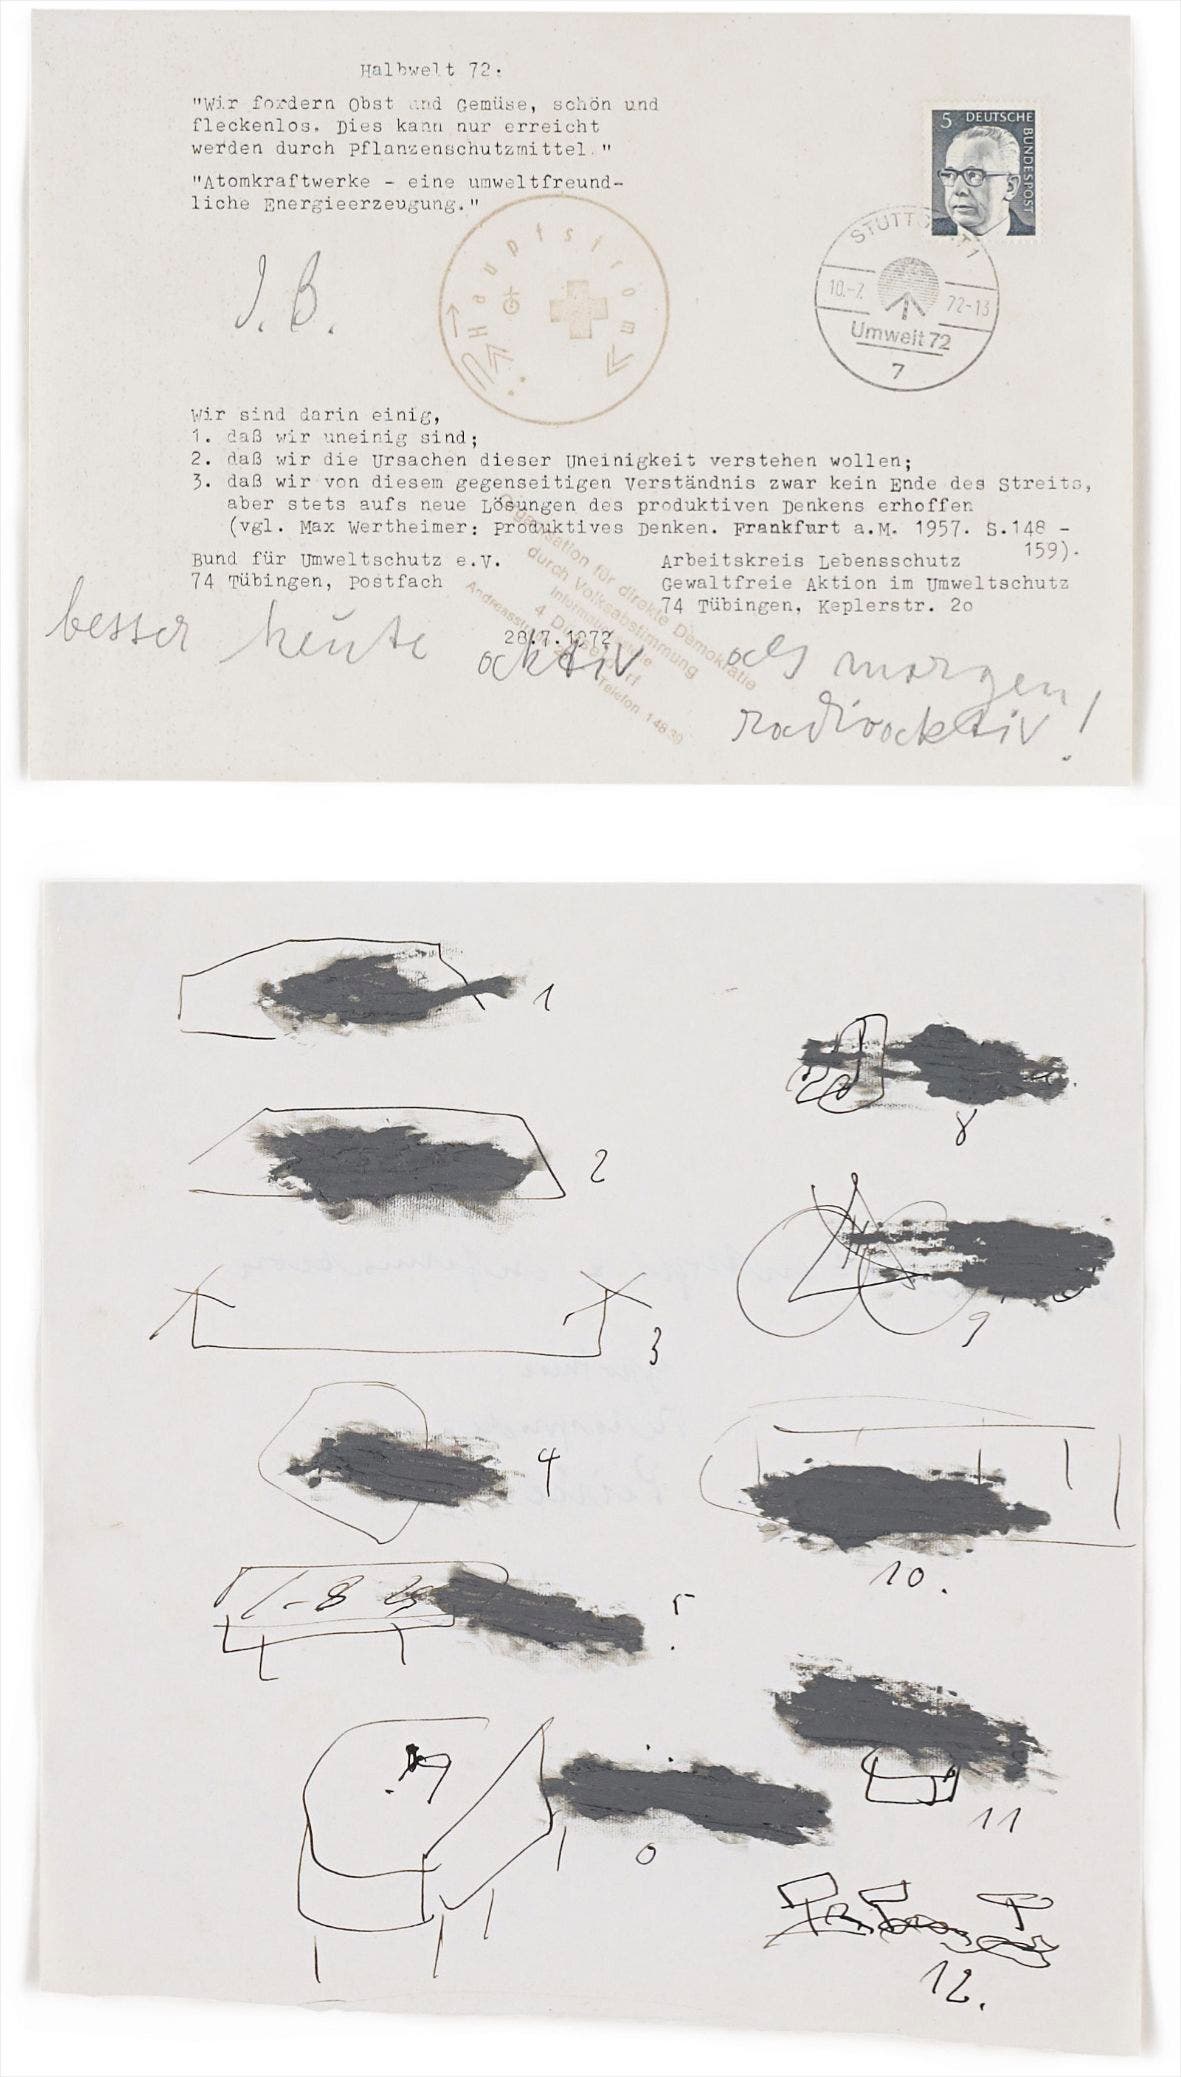 Halbwelt 72:
"Wir fordern Obst und Gemüse, schön und
fleckenlos. Dies kann nur erreicht
werden durch Pflanzenschutzmittel."
"Atomkraftwerke - eine umweltfreund-
liche Energieerzeugung."
5 DEUTSCHE
BUNDESPOST
STUTTGART 1
10.-7.
72-13
Umwelt 72
7
Hauptstrom
J. B.
Wir sind darin einig,
1. daß wir uneinig sind;
2. daß wir die Ursachen dieser Uneinigkeit verstehen wollen;
3. daß wir von diesem gegenseitigen Verständnis zwar kein Ende des Streits,
aber stets aufs neue Lösungen des produktiven Denkens erhoffen
(vgl. Max Wertheimer: Produktives Denken. Frankfurt a.M. 1957. S.148 -
159).
Bund für Umweltschutz e.V.
74 Tübingen, Postfach
Arbeitskreis Lebensschutz
Gewaltfreie Aktion im Umweltschutz
74 Tübingen, Keplerstr. 2o
28.7.1972
Organisation für direkte Demokratie
durch Volksabstimmung
4 Düsseldorf
Telefon
besser heute aktiv als morgen
radioaktiv!
1
2
3
4
5
8
9
10.
11
12.